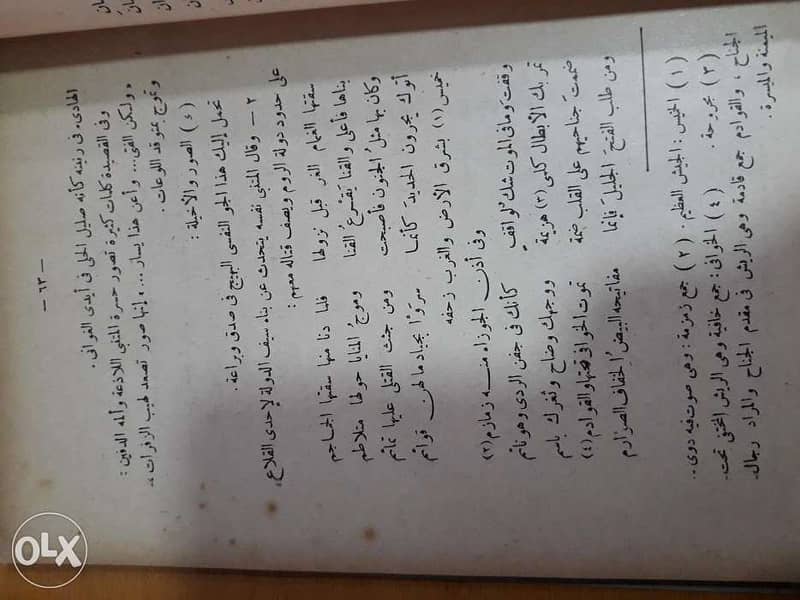 — ٦٣ —
الهادىء فى رنينه كأنه صليل الحلى فى أيدى الغوانى.
وفى القصيدة كلمات كثيرة تصور حسرة المتنبى اللاذعة وألمه الدفين:
«ولكن الفتى... وأعن هذا يسار...» إنها صور تصعد لهيب الزفرات،
وتموج بتوقد اللوعات.
(٤) الصور والأخيلة:
تحمل إليك هذا الجو النفسى البهيج فى صدق وبراعة.
٢ — وقال المتنبى نفسه يتحدث عن بناء سيف الدولة لإحدى القلاع،
على حدود دولة الروم ويصف قتاله معهم:
سقتها الغمام الغر قبل نزولها فلما دنا منها سقتها الجماجم
بناها فأعلى والقنا يقرع القنا وموج المنايا حولها متلاطم
وكان بها مثل الجنون فأصبحت ومن جثث القتلى عليها تمائم
أتوك يجرون الحديد كأنما سروا بجياد ما لهن قوائم
خميس (١) بشرق الأرض والغرب زحفه
وفى أذن الجوزاء منه زمازم (٢)
وقفت وما فى الموت شك لواقف كأنك فى جفن الردى وهو نائم
تمر بك الأبطال كلمى (٣) هزيمة ووجهك وضاح وثغرك باسم
ضممت جناحيهم على القلب ضمة تموت الخوافى تحتها والقوادم (٤)
ومن طلب الفتح الجليل فإنما مفاتيحه البيض الخفاف الصوارم
(١) الخميس: الجيش العظيم. (٢) جمع زمزمة: وهى صوت فيه دوى..
(٣) مجروحة (٤) الخوافى: جمع خافية وهى الريش المختفى تحت
الجناح، والقوادم جمع قادمة وهى الريش فى مقدم الجناح والمراد رجال.
الميمنة والميسرة.
OLX